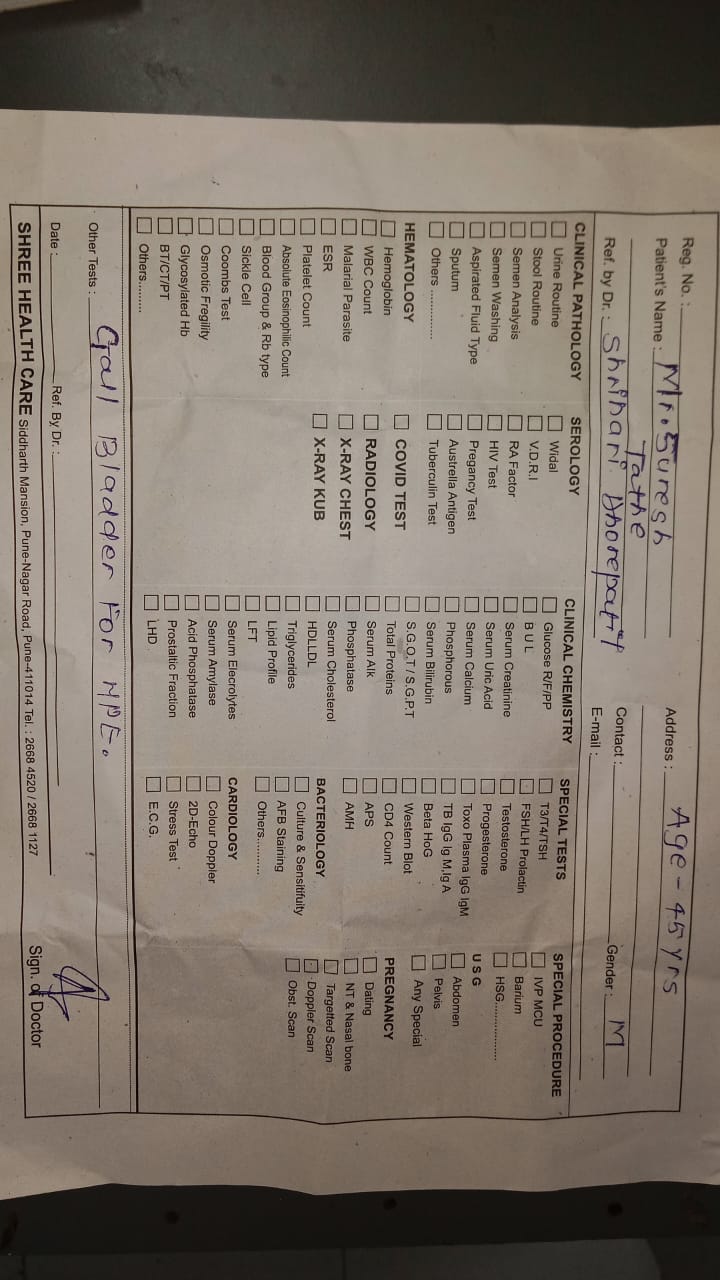 Reg. No. :
Patient's Name : Mr. Suresh
Tathe
Ref. by Dr. : Shrihari Dhorepatil
Address : Age - 45 yrs
Contact : Gender : M
E-mail :
CLINICAL PATHOLOGY
Urine Routine
Stool Routine
Semen Analysis
Semen Washing
Aspirated Fluid Type
Sputum
Others ..............
HEMATOLOGY
Hemoglobin
WBC Count
Malarial Parasite
ESR
Platelet Count
Absolute Eosinophilic Count
Blood Group & Rb type
Sickle Cell
Coombs Test
Osmotic Fregility
Glycosylated Hb
BT/CT/PT
Others.........
SEROLOGY
Widal
V.D.R.I
RA Factor
HIV Test
Pregancy Test
Austrella Antigen
Tuberculin Test
COVID TEST
RADIOLOGY
X-RAY CHEST
X-RAY KUB
CLINICAL CHEMISTRY
Glucose R/F/PP
B U L
Serum Creatinine
Serum Uric Acid
Serum Calcium
Phosphorous
Serum Bilirubin
S.G.O.T / S.G.P.T
Total Proteins
Serum Alk
Phosphatase
Serum Cholesterol
HDLLDL
Triglycerides
Lipid Profile
LFT
Serum Elecrolytes
Serum Amylase
Acid Phosphatase
Prostaltic Fraction
LHD
SPECIAL TESTS
T3/T4/TSH
FSH/LH Prolactin
Testosterone
Progesterone
Toxo Plasma IgG IgM
TB IgG Ig M,Ig A
Beta HoG
Western Blot
CD4 Count
APS
AMH
BACTERIOLOGY
Culture & Sensitifuity
AFB Staining
Others...........
CARDIOLOGY
Colour Doppler
2D-Echo
Stress Test
E.C.G.
SPECIAL PROCEDURE
IVP MCU
Barium
HSG................
U S G
Abdomen
Pelvis
Any Special
PREGNANCY
Dating
NT & Nasal bone
Targetted Scan
Doppler Scan
Obst. Scan
Other Tests : Gall Bladder For HPE.
Date : Ref. By Dr. : Sign. of Doctor
SHREE HEALTH CARE Siddharth Mansion, Pune-Nagar Road, Pune-411014 Tel. : 2668 4520 / 2668 1127